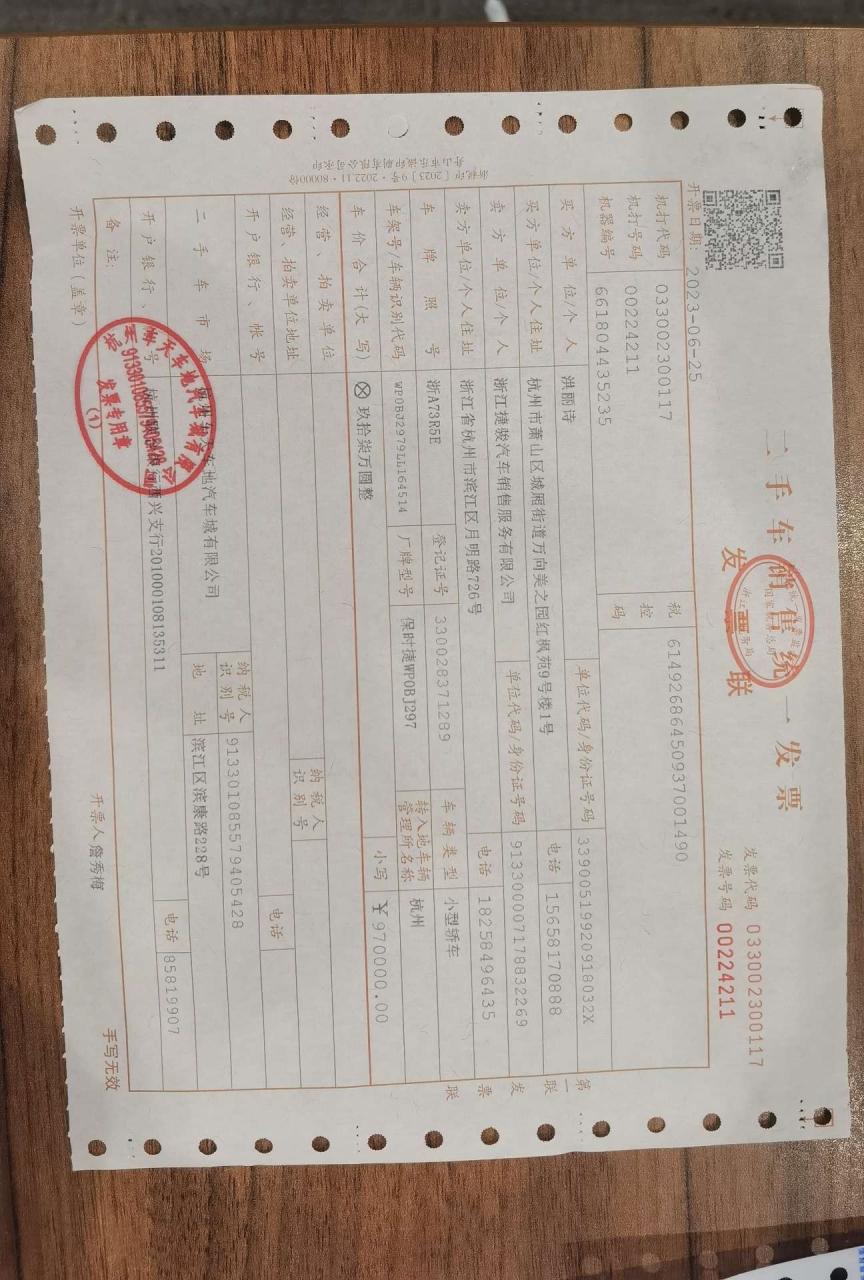 二手车销售统一发票
发票联
发票代码 033002300117
发票号码 00224211
开票日期: 2023-06-25
机打代码 033002300117
机打号码 00224211
机器编号 661804435235
税控码 61492686450937001490
买方单位/个人 洪丽诗 单位代码/身份证号码 33900519920918032X
买方单位/个人住址 杭州市萧山区城厢街道万向美之园红枫苑9号楼1号 电话 15658170888
卖方单位/个人 浙江捷骏汽车销售服务有限公司 单位代码/身份证号码 913300007178832269
卖方单位/个人住址 浙江省杭州市滨江区月明路726号 电话 18258496435
车牌照号 浙A73R5E 登记证号 330028371289 车辆类型 小型轿车
车架号/车辆识别代码 WP0BJ2979LL164514 厂牌型号 保时捷WP0BJ297 转入地车辆管理所名称 杭州
车价合计(大写) ⊗玖拾柒万圆整 小写 ￥970000.00
经营、拍卖单位
经营、拍卖单位地址 纳税人识别号
开户银行、帐号 电话
二手车市场 车地汽车城有限公司 纳税人识别号 913301085579405428
地址 滨江区滨康路228号
开户银行、号 银行西兴支行201000108135311 电话 85819907
备注:
开票单位(盖章) 开票人 詹秀梅 手写无效
第一联 发票联
浙税印〔2023〕9号·2022.11·80000份
发票专用章
(1)